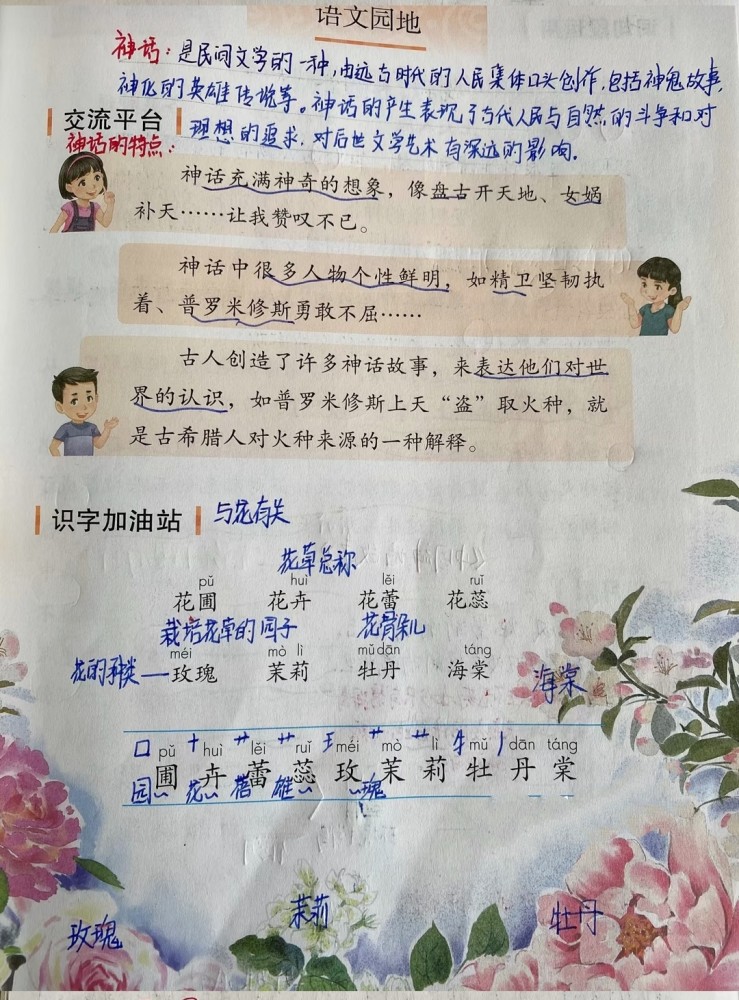 语文园地
神话：是民间文学的一种，由远古时代的人民集体口头创作，包括神鬼故事，
神化的英雄传说等。神话的产生表现了古代人民与自然的斗争和对
交流平台
理想的追求，对后世文学艺术有深远的影响。
神话的特点：
神话充满神奇的想象，像盘古开天地、女娲
补天……让我赞叹不已。
神话中很多人物个性鲜明，如精卫坚韧执
着、普罗米修斯勇敢不屈……
古人创造了许多神话故事，来表达他们对世
界的认识，如普罗米修斯上天“盗”取火种，就
是古希腊人对火种来源的一种解释。
识字加油站 与花有关
花草总称
pǔ huì lěi ruǐ
花圃 花卉 花蕾 花蕊
栽培花草的园子 花骨朵儿
méi mò lì mǔ dān táng
花的种类——玫瑰 茉莉 牡丹 海棠
海棠
囗 pǔ 十 huì 艹 lěi 艹 ruǐ 王 méi 艹 mò lì 牜 mǔ 丿 dān táng
圃 卉 蕾 蕊 玫 茉 莉 牡 丹 棠
园 花 蓓 雄 瑰
茉莉
玫瑰 牡丹